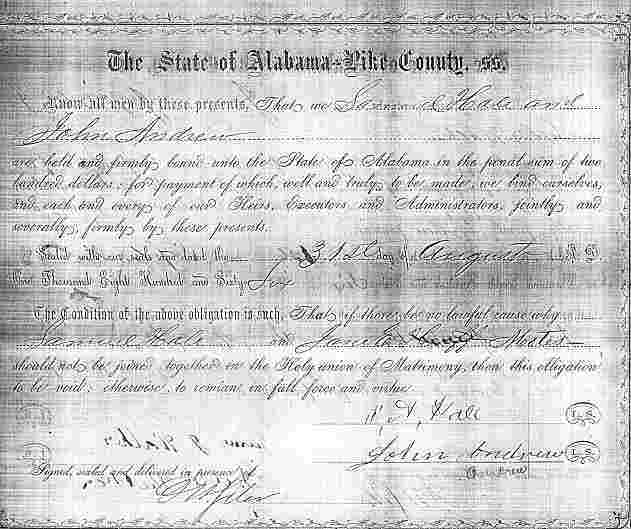 The State of Alabama—Pike County, ss.
Know all men by these presents, That we Samuel Hale and
John Andrew
are held and firmly bound unto the State of Alabama in the penal sum of two
hundred dollars; for payment of which, well and truly to be made, we bind ourselves,
and each and every of our Heirs, Executors and Administrators, jointly and
severally, firmly by these presents.
Sealed with our seals and dated the 31st day of August A. D.
One Thousand Eight Hundred and Sixty Six
The Condition of the above obligation is such, That if there be no lawful cause why
Samuel Hale and Jane
should not be joined together in the Holy union of Matrimony, then this obligation
to be void; otherwise, to remain in full force and virtue.
Hale L. S.
John Andrew L. S.
Andrew
Signed, sealed and delivered in presence of